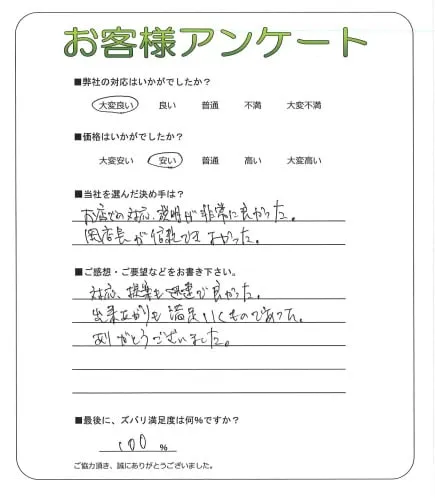 お客様アンケート
■弊社の対応はいかがでしたか？
大変良い 良い 普通 不満 大変不満
■価格はいかがでしたか？
大変安い 安い 普通 高い 大変高い
■当社を選んだ決め手は？
お店での対応、説明が非常に良かった。
店長が信頼できそうだった。
■ご感想・ご要望などをお書き下さい。
対応、提案も迅速で良かった。
出来上がりも満足いくものであった。
ありがとうございました。
■最後に、ズバリ満足度は何％ですか？
100 %
ご協力頂き、誠にありがとうございました。